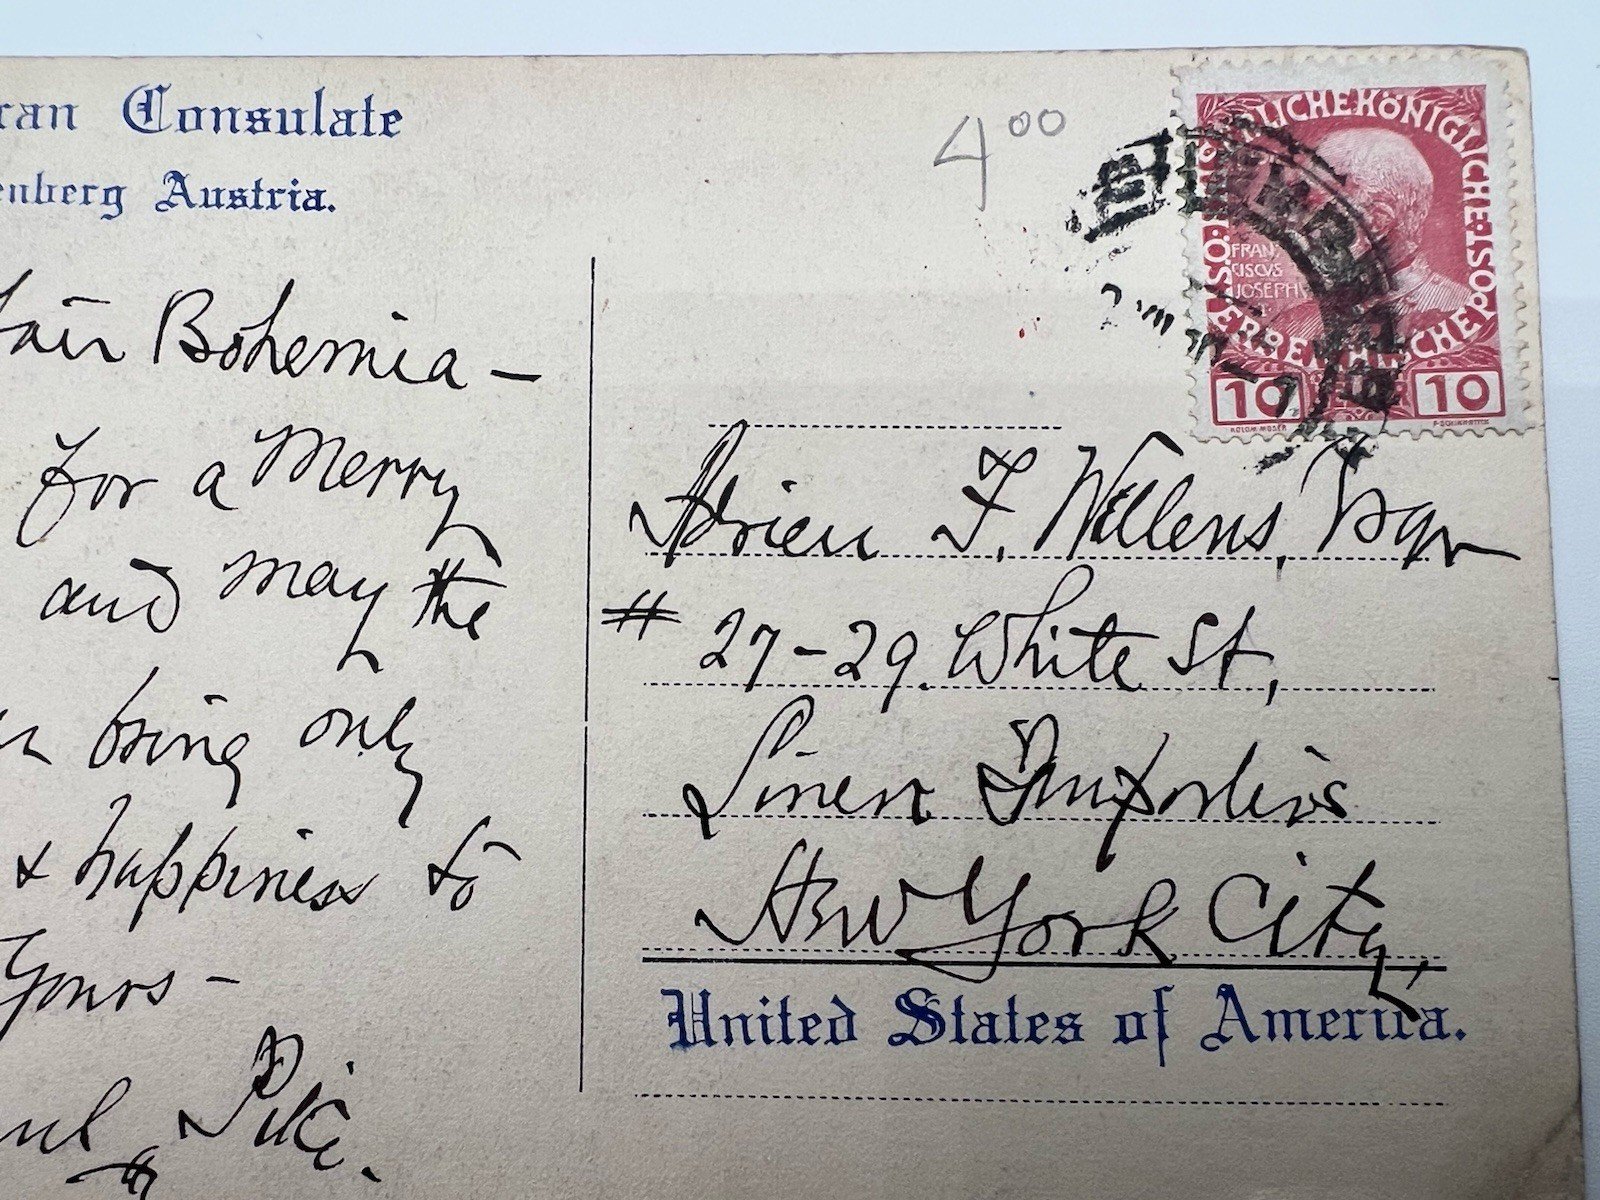 ran Consulate
enberg Austria.
4 00
fair Bohemia -
for a Merry
and may the
bring only
& happiness to
Yours -
Pike.
Adrien F. Willens, Esqr
# 27-29. White St,
Linen Importers
New York City,
United States of America.
KÖNIGLICHE
FRAN
CISCVS
JOSEPH
10 10
KOLOM. MOSER